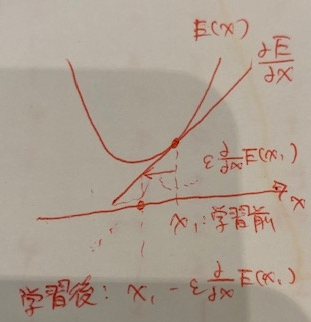 E(x)
∂E/∂x
ε ∂/∂x E(x₁)
x
x₁: 学習前
学習後: x₁ - ε ∂/∂x E(x₁)